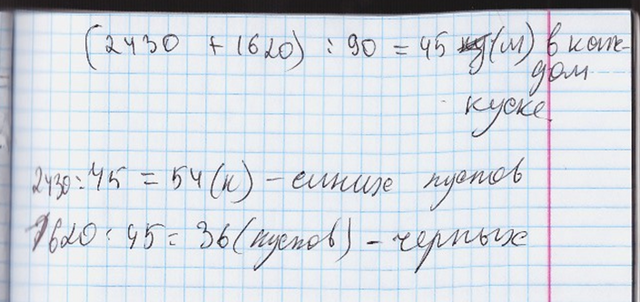 (2430 + 1620) : 90 = 45 (м) в каж-
дом
куске
2430 : 45 = 54 (к) - синих кусков
1620 : 45 = 36 (кусков) - черных